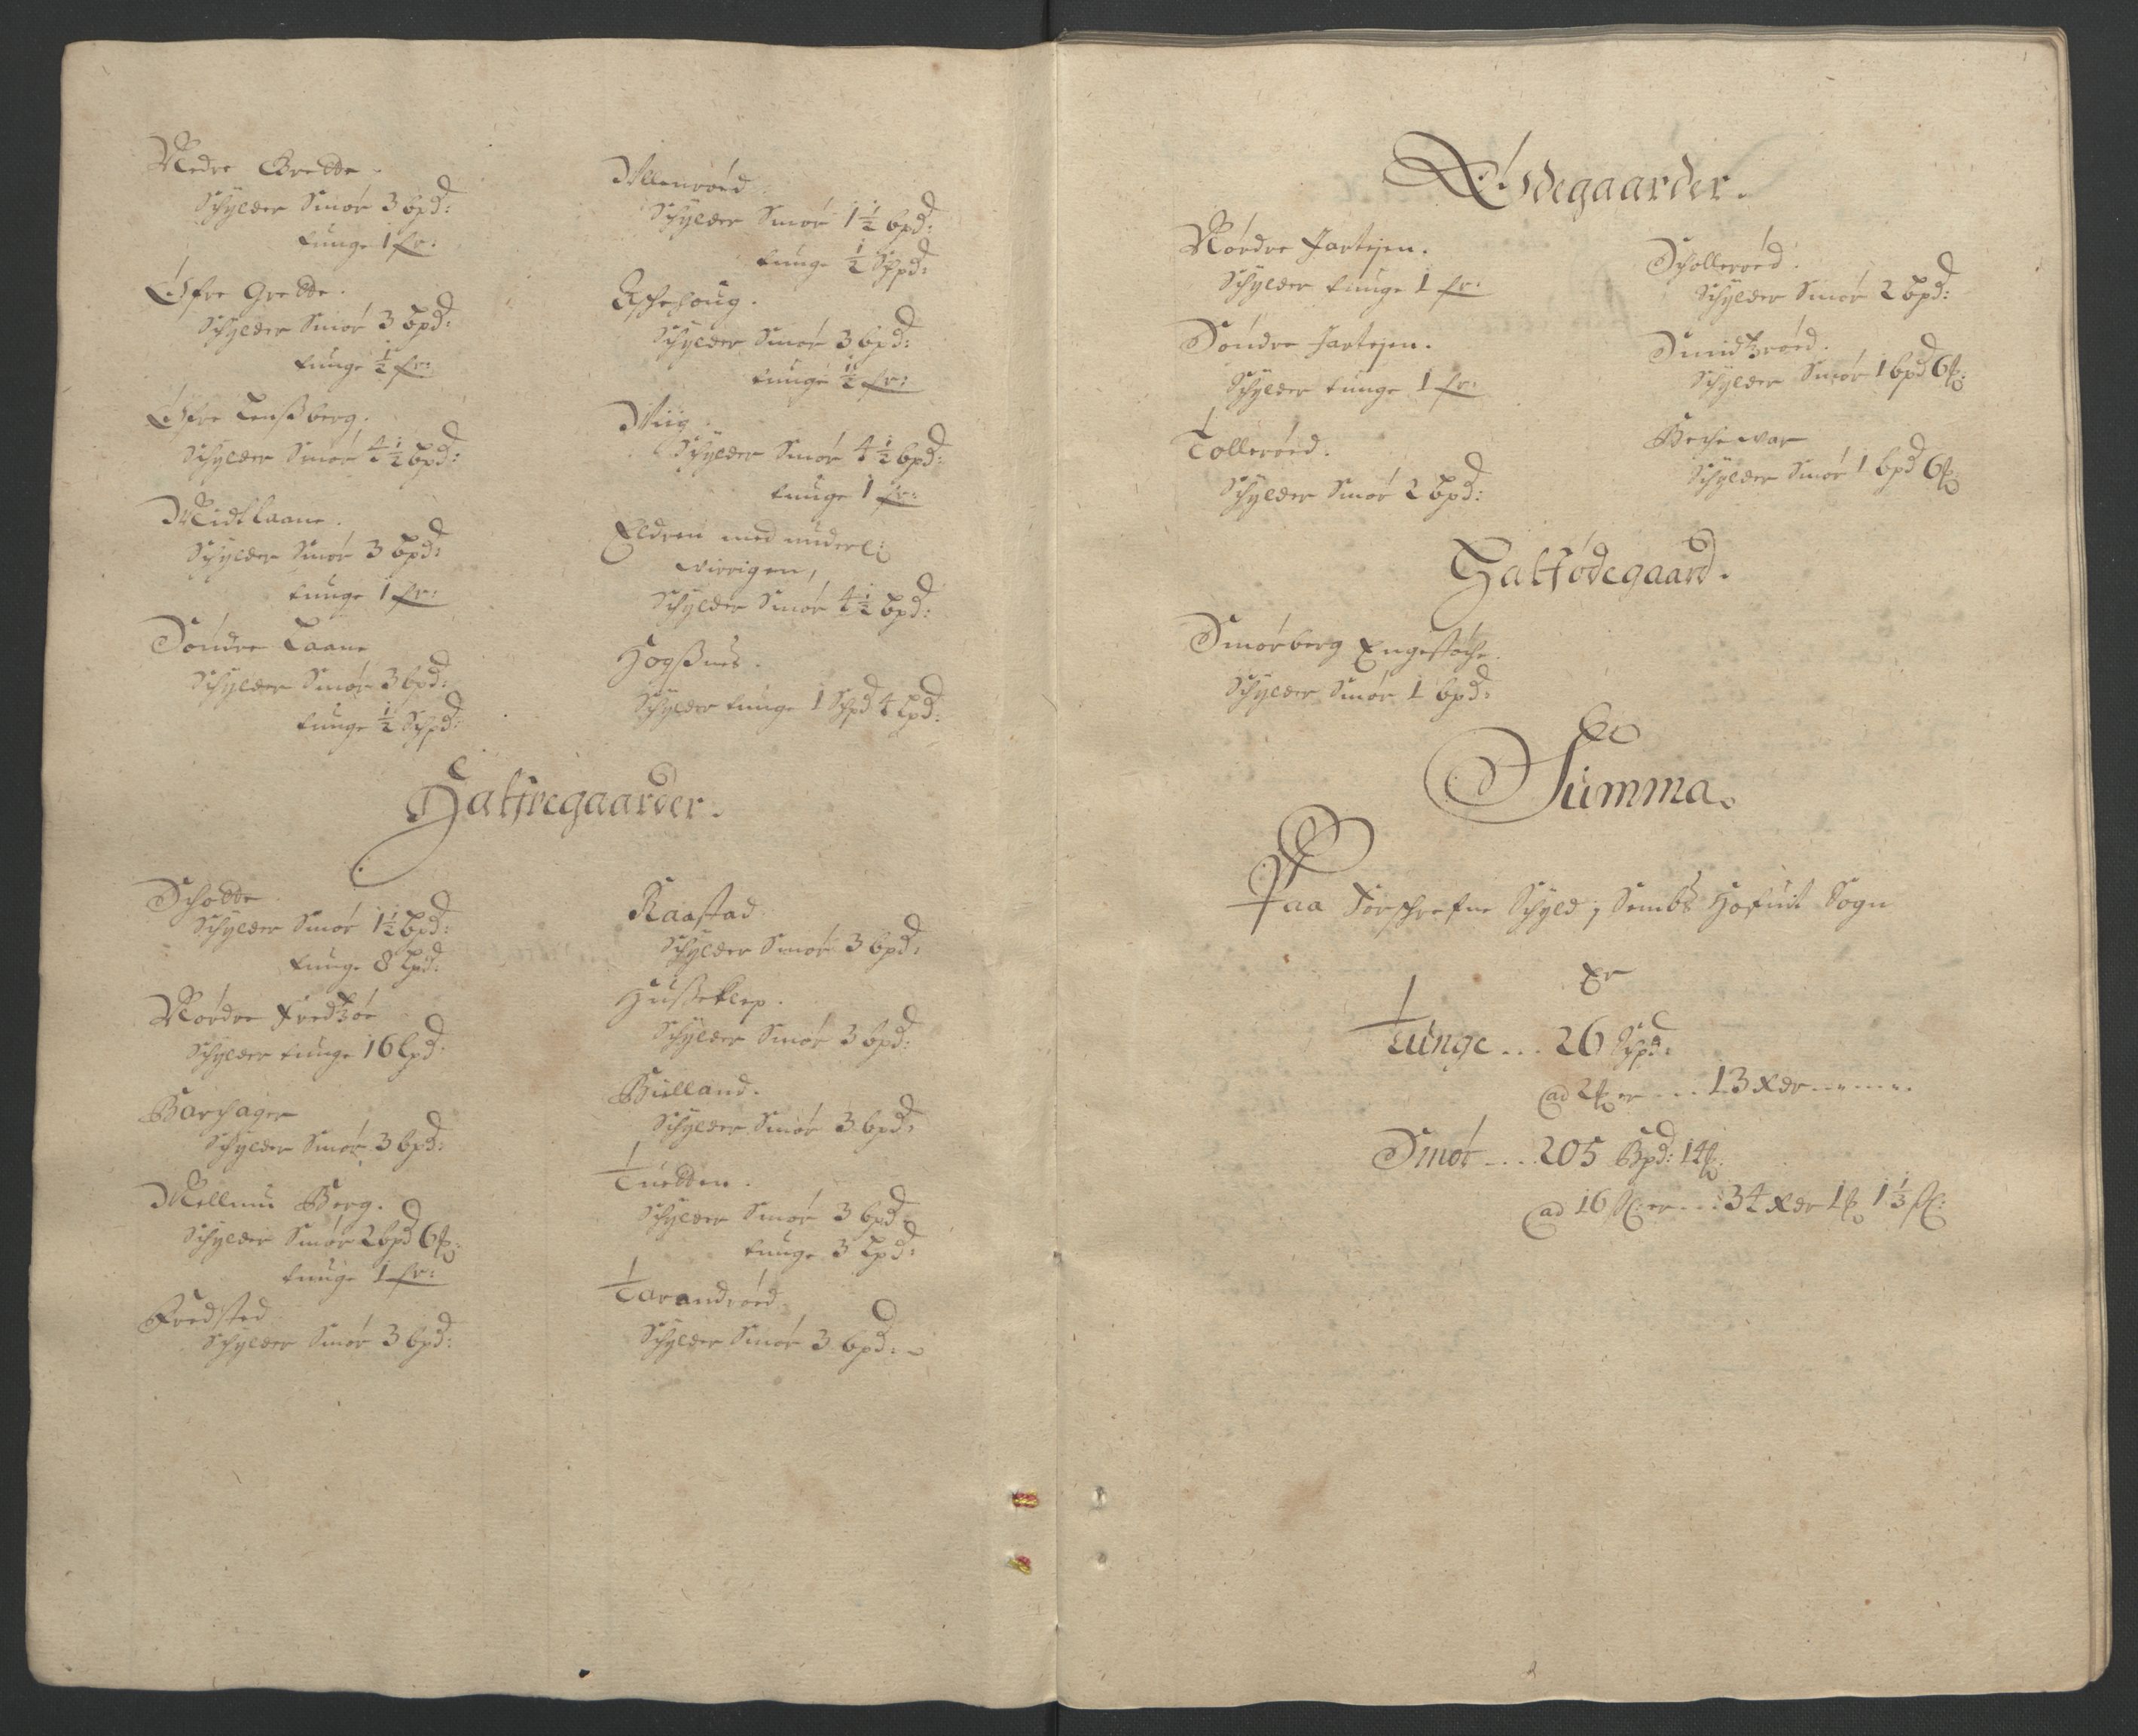 Nedre Gredde.
Schylder Smör 3 bpd:
tunge 1 fr:
Öfre Gredde.
Schylder Smör 3 bpd:
tunge ½ fr:
Öfre Lensberg.
Schylder Smör 4½ bpd:
Midtlaane.
Schylder Smör 3 bpd:
tunge 1 fr:
Söndre Laane
Schylder Smör 3 bpd:
tunge ½ Schpd:
Ullenröed.
Schylder Smör 1½ bpd:
tunge ½ Schpd:
Eschehoug.
Schylder Smör 3 bpd:
tunge ½ fr:
Wiig.
Schylder Smör 4½ bpd:
tunge 1 fr:
Eldren med underl:
Schylder Smör 4½ bpd:
Hogßnes.
Schylder tunge 1 Schpd 4 Lpd:
Halfregaarder.
Schodde.
Schylder Smör 1½ bpd:
tunge 8 Lpd:
Nördre Fredzöe
Schylder tunge 16 Lpd:
Barchager
Schylder Smör 3 bpd:
Mellum Berg.
Schylder Smör 2 bpd 6 ℔:
tunge 1 fr:
Fredsted
Schylder Smör 3 bpd:
Raastad.
Schylder Smör 3 bpd:
Hußeklep.
Schylder Smör 3 bpd:
Bulland.
Schylder Smör 3 bpd:
Tuedten.
Schylder Smör 3 bpd:
tunge 3 Lpd:
Tarandröed.
Schylder Smör 3 bpd:
Ödegaarder.
Nördre Jartejen.
Schylder tunge 1 fr:
Söndre Jartejen.
Schylder tunge 1 fr:
Tolleröed.
Schylder Smör 2 bpd:
Scholleröed.
Schylder Smör 2 bpd:
Smidtzröed.
Schylder Smör 1 bpd 6 ℔:
Bechewar
Schylder Smör 1 bpd 6 ℔
Halfödegaard.
Smörberg Engestöche.
Schylder Smör 1 bpd:
Summa.
Paa Forschrefne Schyld, Sembs Hofuit Sogn
Er
Tunge... 26 Schpd:
ad 2 ℔ er.... 13 Rdr
Smör.... 205 Bpd: 14 ℔:
ad 16 ß: er... 34 Rdr 1 ℔ 1⅓ ß: